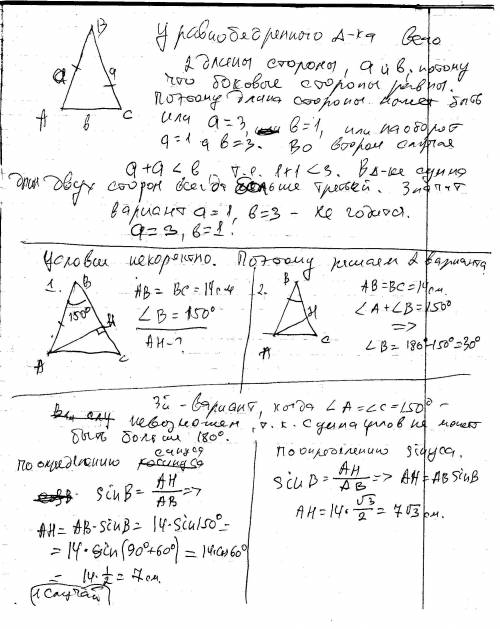 У равнобедренного Δ-ка всего
2 длины стороны, a и b, потому
что боковые стороны равны.
Поэтому длина стороны может быть
или a=3, b=1, или наоборот
a=1 a b=3. Во втором случае
a+a<b т.е. 1+1<3. В Δ-ке сумма
длин двух сторон всегда больше третьей. Значит
вариант a=1, b=3 – не годится.
a=3, b=1!
B
a
a
A
b
C
Условие некоректно. Поэтому решаем 2 варианта
1.
B
150°
H
A
C
AB=BC=14см
∠B=150°
AH-?
2.
B
H
A
C
AB=BC=14см.
∠A+∠B=150°
=>
∠B=180°-150°=30°
3й-вариант, когда ∠A=∠C=150° –
невозможен, т.к. сумма углов не может
быть больше 180°.
По определению синуса
sinB=AH/AB =>
AH=AB·sinB=14·sin150°=
=14·sin(90°+60°)=14·cos60°
=14·1/2=7см.
1 случай
По определению sinуса.
sinB=AH/AB => AH=AB sinB
AH=14·√3/2=7√3см.